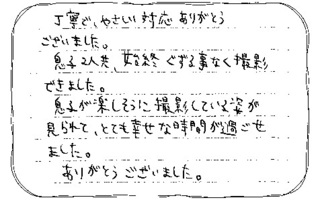 丁寧で、やさしい対応ありがとう
ございました。
息子2人共、始終ぐずる事なく撮影
できました。
息子が楽しそうに撮影している姿が
見られて、とても幸せな時間が過ごせ
ました。
ありがとうございました。